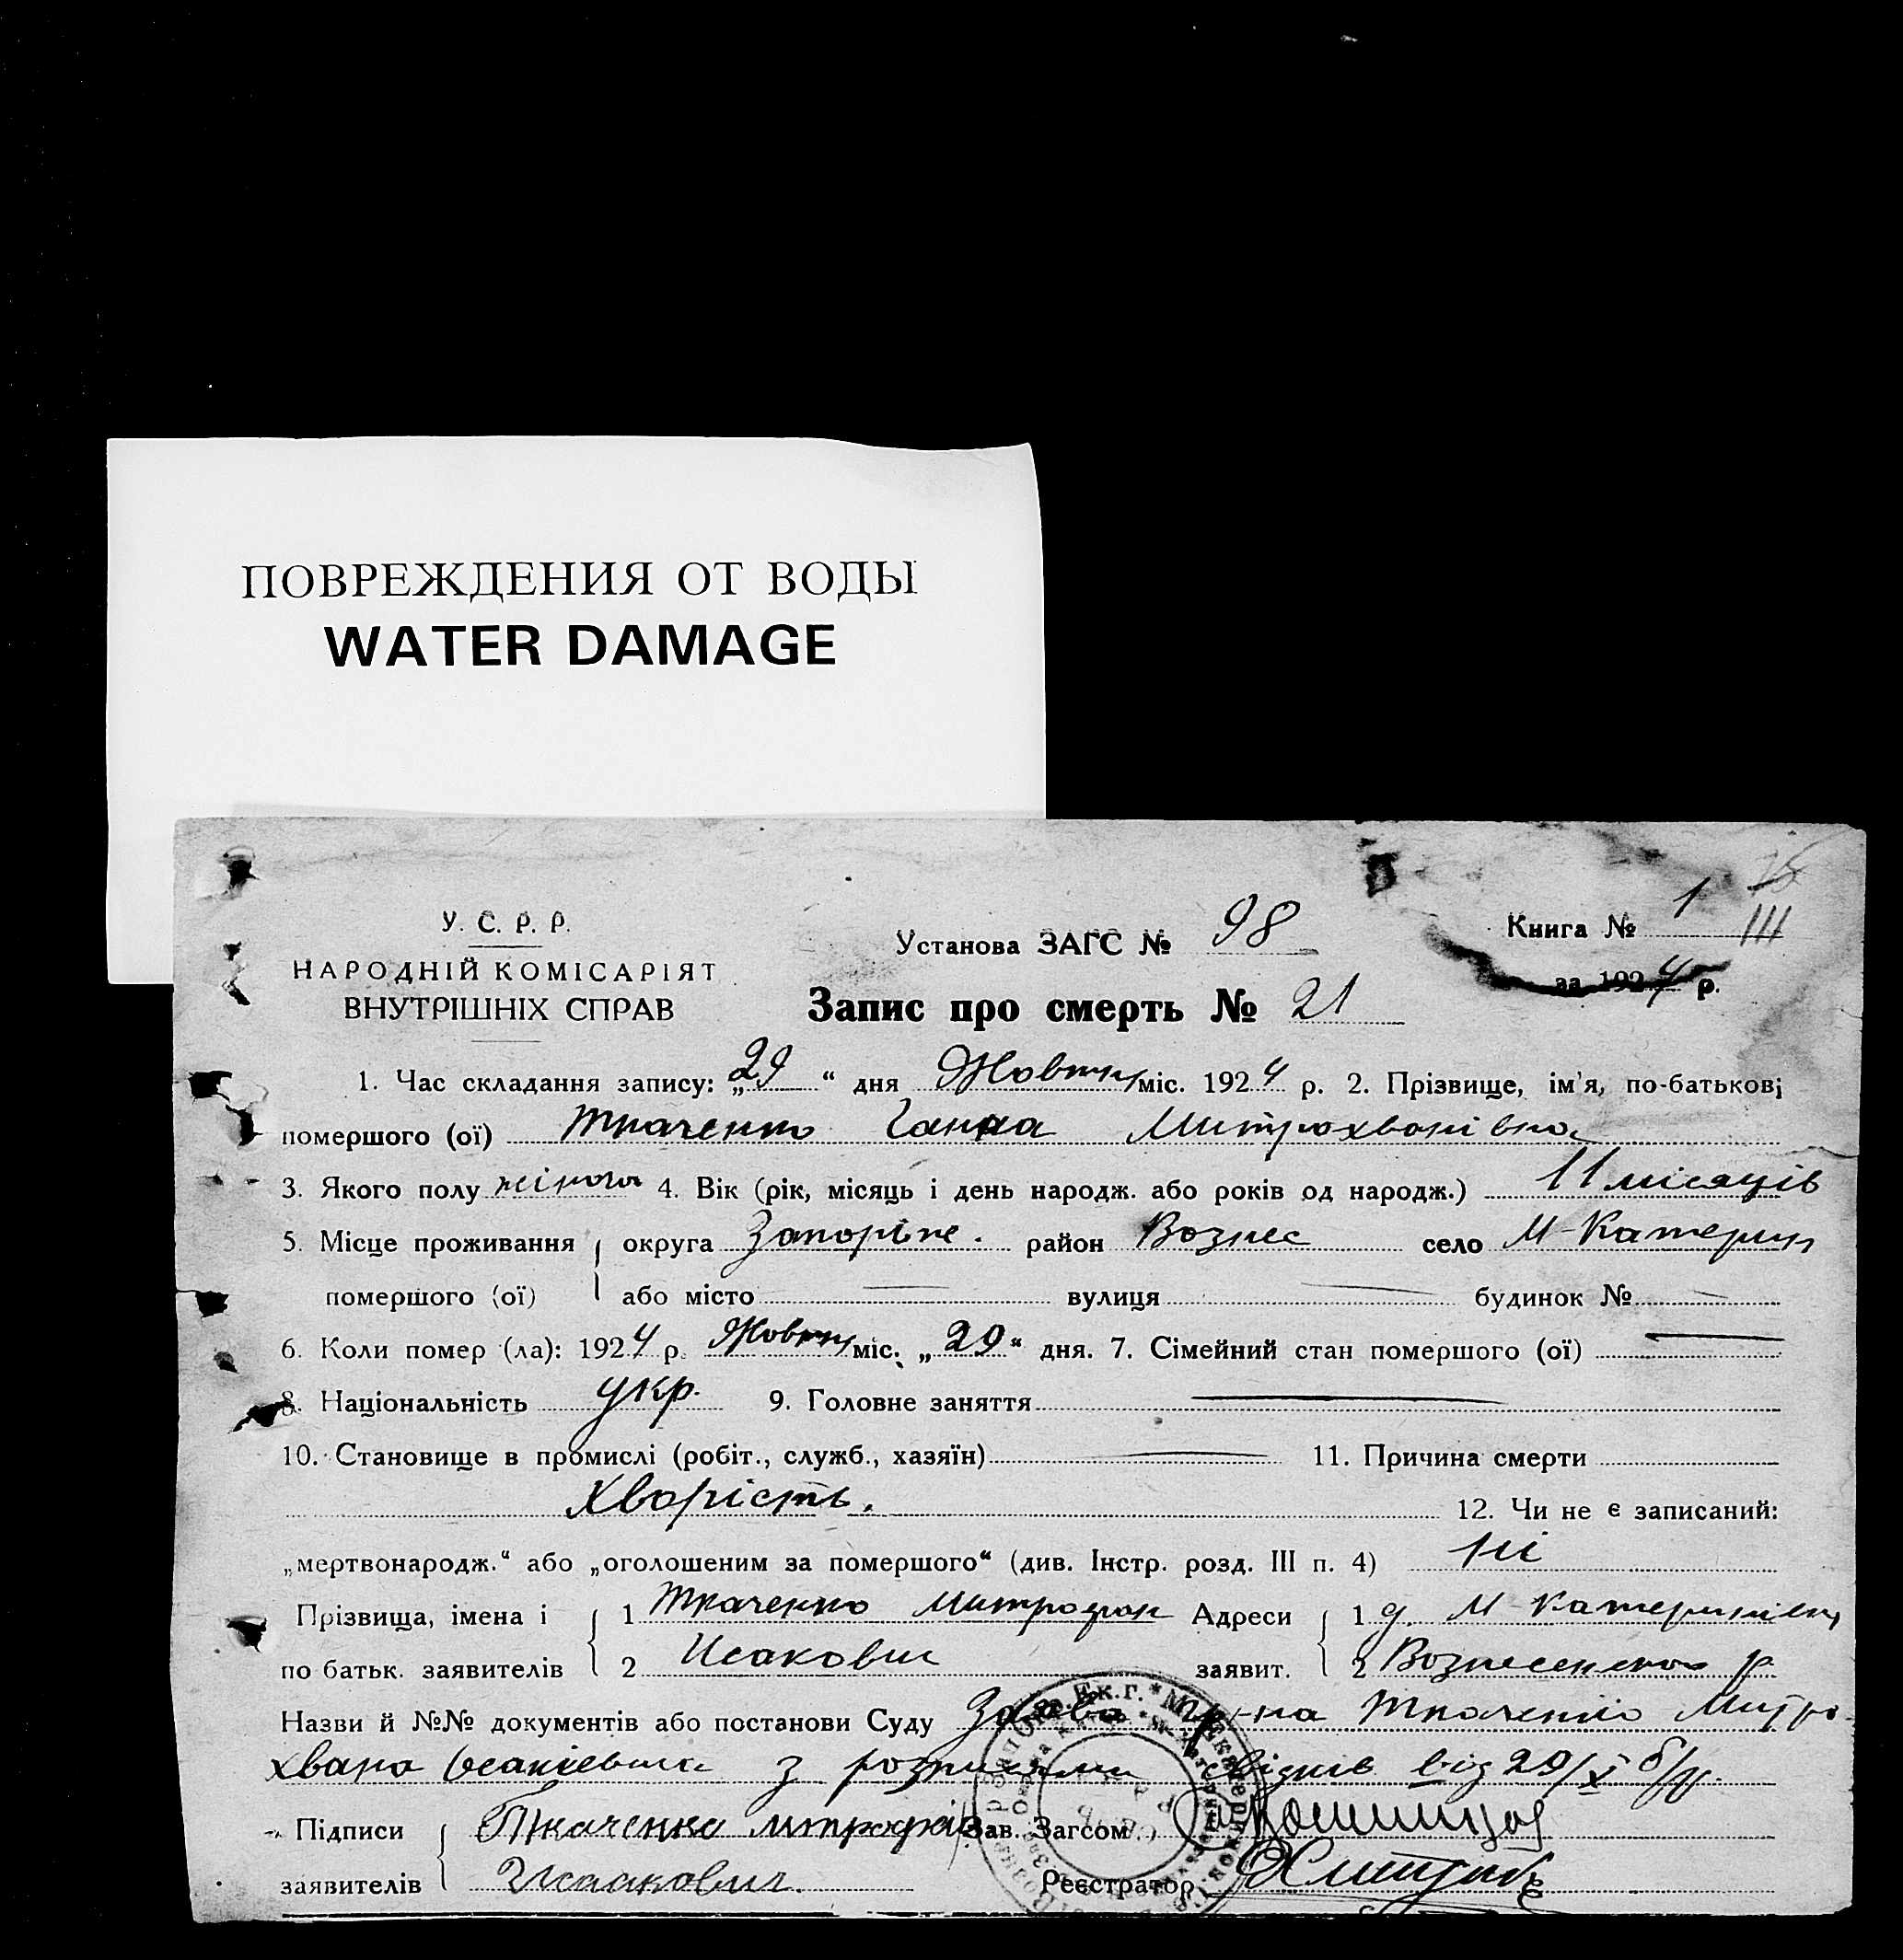 ПОВРЕЖДЕНИЯ ОТ ВОДЫ
WATER DAMAGE
У. С. Р. Р.
НАРОДНІЙ КОМІСАРІЯТ
ВНУТРІШНІХ СПРАВ
Установа ЗАГС № 98
Книга № 1
III
за 1924 р.
Запис про смерть № 21
1. Час складання запису: „29“ дня Жовтн міс. 1924 р. 2. Прізвище, ім'я, по-батькові
помершого (ої) Ткаченко Ганна Митрохванівна
3. Якого полу жіноча 4. Вік (рік, місяць і день народж. або років од народж.) 11 місяців
5. Місце проживання округа Запоріже. район Вознес село М-Катерин
помершого (ої) або місто — вулиця — будинок № —
6. Коли помер (ла): 1924 р. Жовтн міс. „29“ дня. 7. Сімейний стан помершого (ої) —
8. Національність укр. 9. Головне заняття —
10. Становище в промислі (робіт., служб., хазяїн) — 11. Причина смерти
Хворість. 12. Чи не є записаний:
„мертвонародж.“ або „оголошеним за помершого“ (див. Інстр. розд. III п. 4) ні
Прізвища, імена і 1 Ткаченко Митрофан Адреси 1 д. М-Катеринівка
по батьк. заявителів 2 Исакович заявит. 2 Вознесенского р
Назви й №№ документів або постанови Суду Заява гр-на Ткаченко Митро-
хвана Осакієвича з розписями свідків від 29/X б/н.
Підписи Ткаченко митрофан Зав. Загсом
заявителів Исаакович. Реєстратор